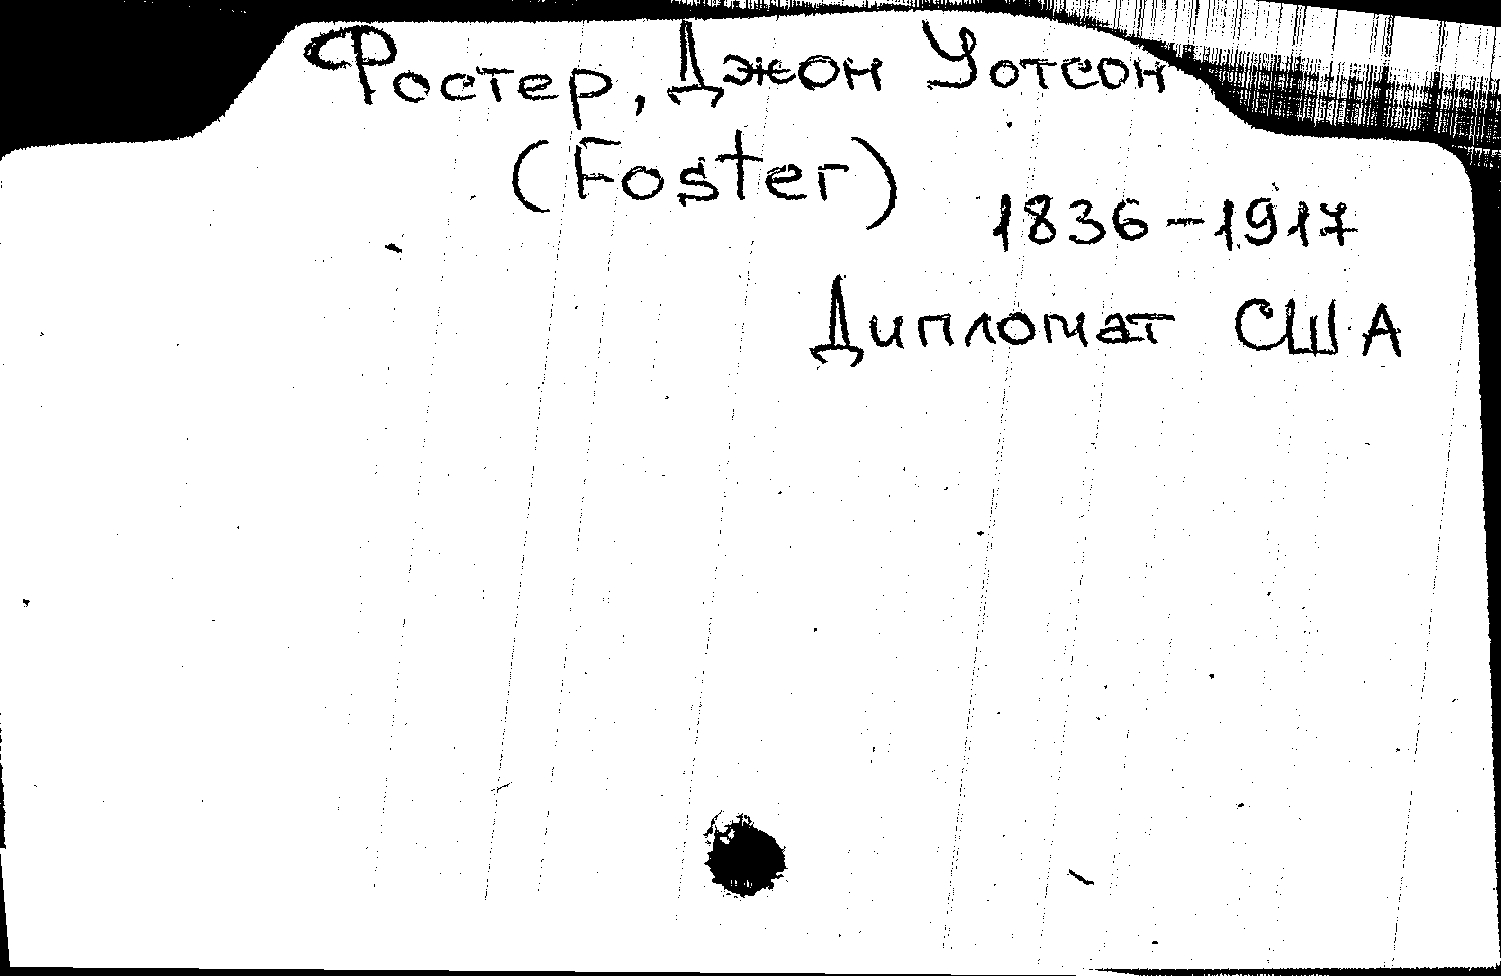 Фостер, Джон Уотсон
(Foster)
1836-1917
Дипломат США